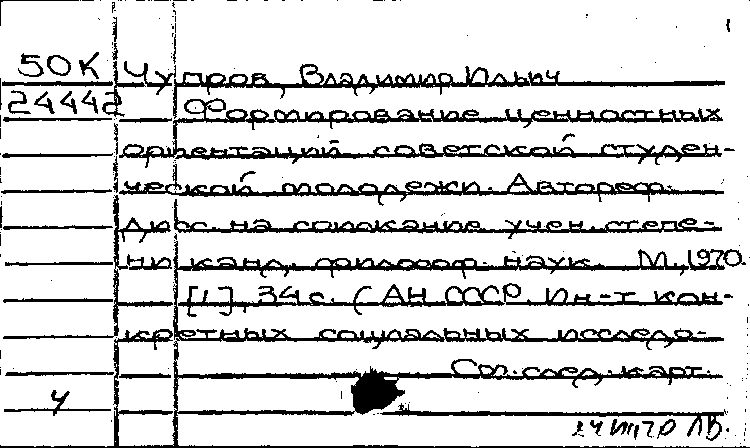 1
50К Чупров, Владимир Ильич
24442 Формирование ценностных
ориентаций советской студен-
ческой молодежи. Автореф.
дисс. на соискание учен. степе-
ни канд. философ. наук. М., 1970.
[1], 34 с. (АН СССР. Ин-т кон-
кретных социальных исследо-
См. след. карт.
Ч
ЛВ.